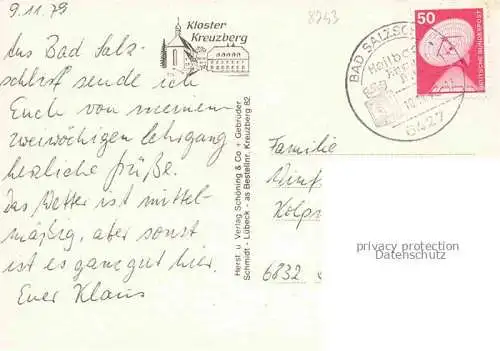 9.11.79
Aus Bad Salz-
schlirf sende ich
Euch von meinem
zweiwöchigen Lehrgang
herzliche Grüße.
Das Wetter ist mittel-
mäßig, aber sonst
ist es ganz gut hier.
Euer Klaus
Kloster
Kreuzberg
8243
Herst. u. Verlag Schöning & Co + Gebrüder
Schmidt - Lübeck - as Bestellnr. Kreuzberg 82
BAD SALZSC
Heilba
6427
50
DEUTSCHE BUNDESPOST
Familie
Kolp
6832
privacy protection
Datenschutz